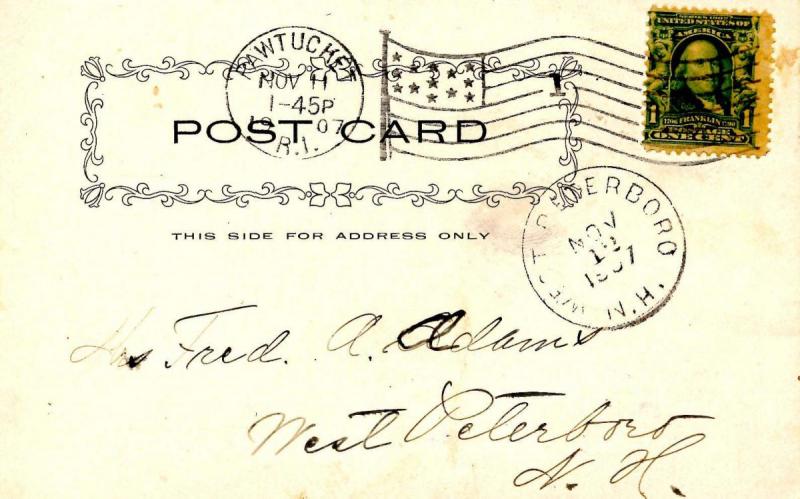 PAWTUCKET
NOV 11
1-45P
1907
R.I.
1
SERIES 1902
UNITED STATES OF AMERICA
1706 FRANKLIN 1790
1 1
POSTAGE
ONE CENT
POST CARD
THIS SIDE FOR ADDRESS ONLY
WEST PETERBORO
NOV
1907
N.H.
Fred. A. Adams
West Peterboro
N. H.